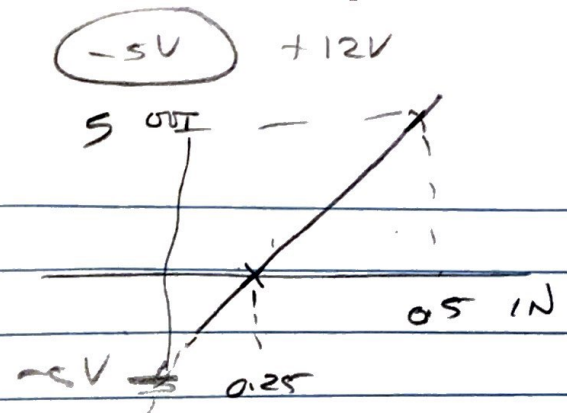 -5V +12V
5 OUT
0.5 IN
-5V 0.25